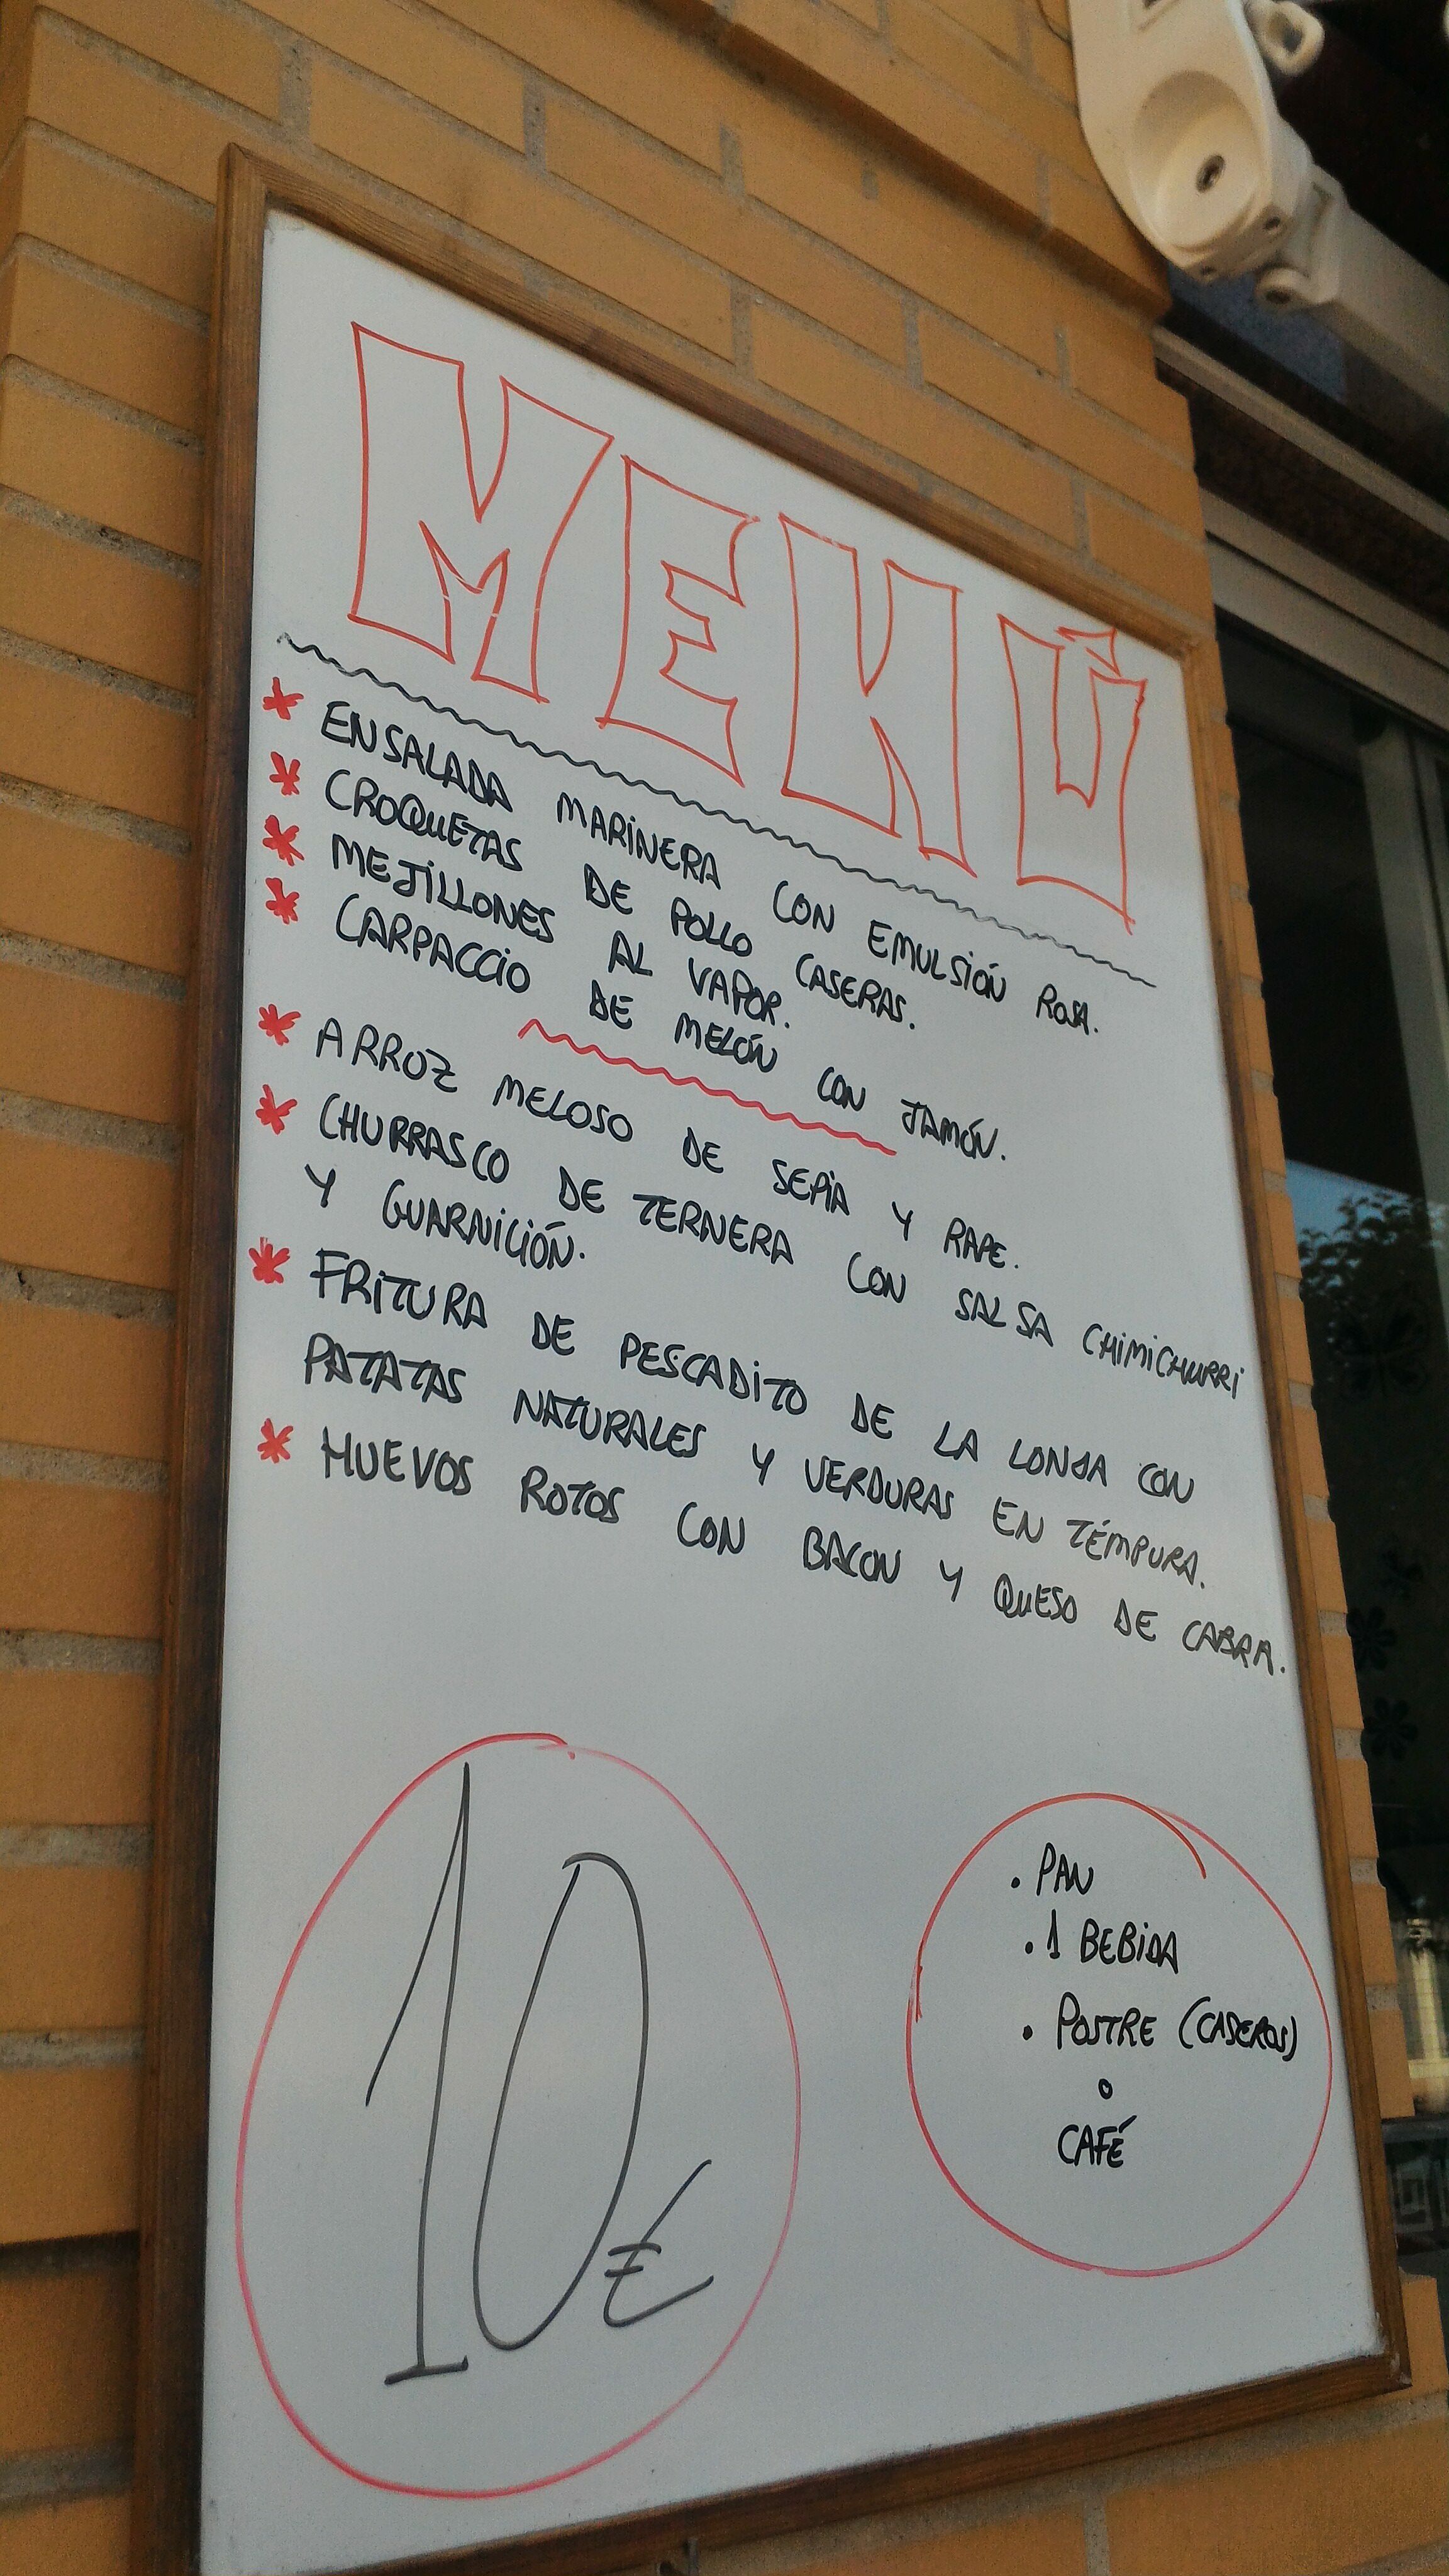 MENÚ
* ENSALADA MARINERA CON EMULSIÓN ROSA.
* CROQUETAS DE POLLO CASERAS.
* MEJILLONES AL VAPOR.
* CARPACCIO DE MELÓN CON JAMÓN.
* ARROZ MELOSO DE SEPIA Y RAPE.
* CHURRASCO DE TERNERA CON SALSA CHIMICHURRI
Y GUARNICIÓN.
* FRITURA DE PESCADITO DE LA LONJA CON
PATATAS NATURALES Y VERDURAS EN TÉMPURA.
* HUEVOS ROTOS CON BACON Y QUESO DE CABRA.
10€
. PAN
. 1 BEBIDA
. POSTRE (CASEROS)
o
CAFÉ